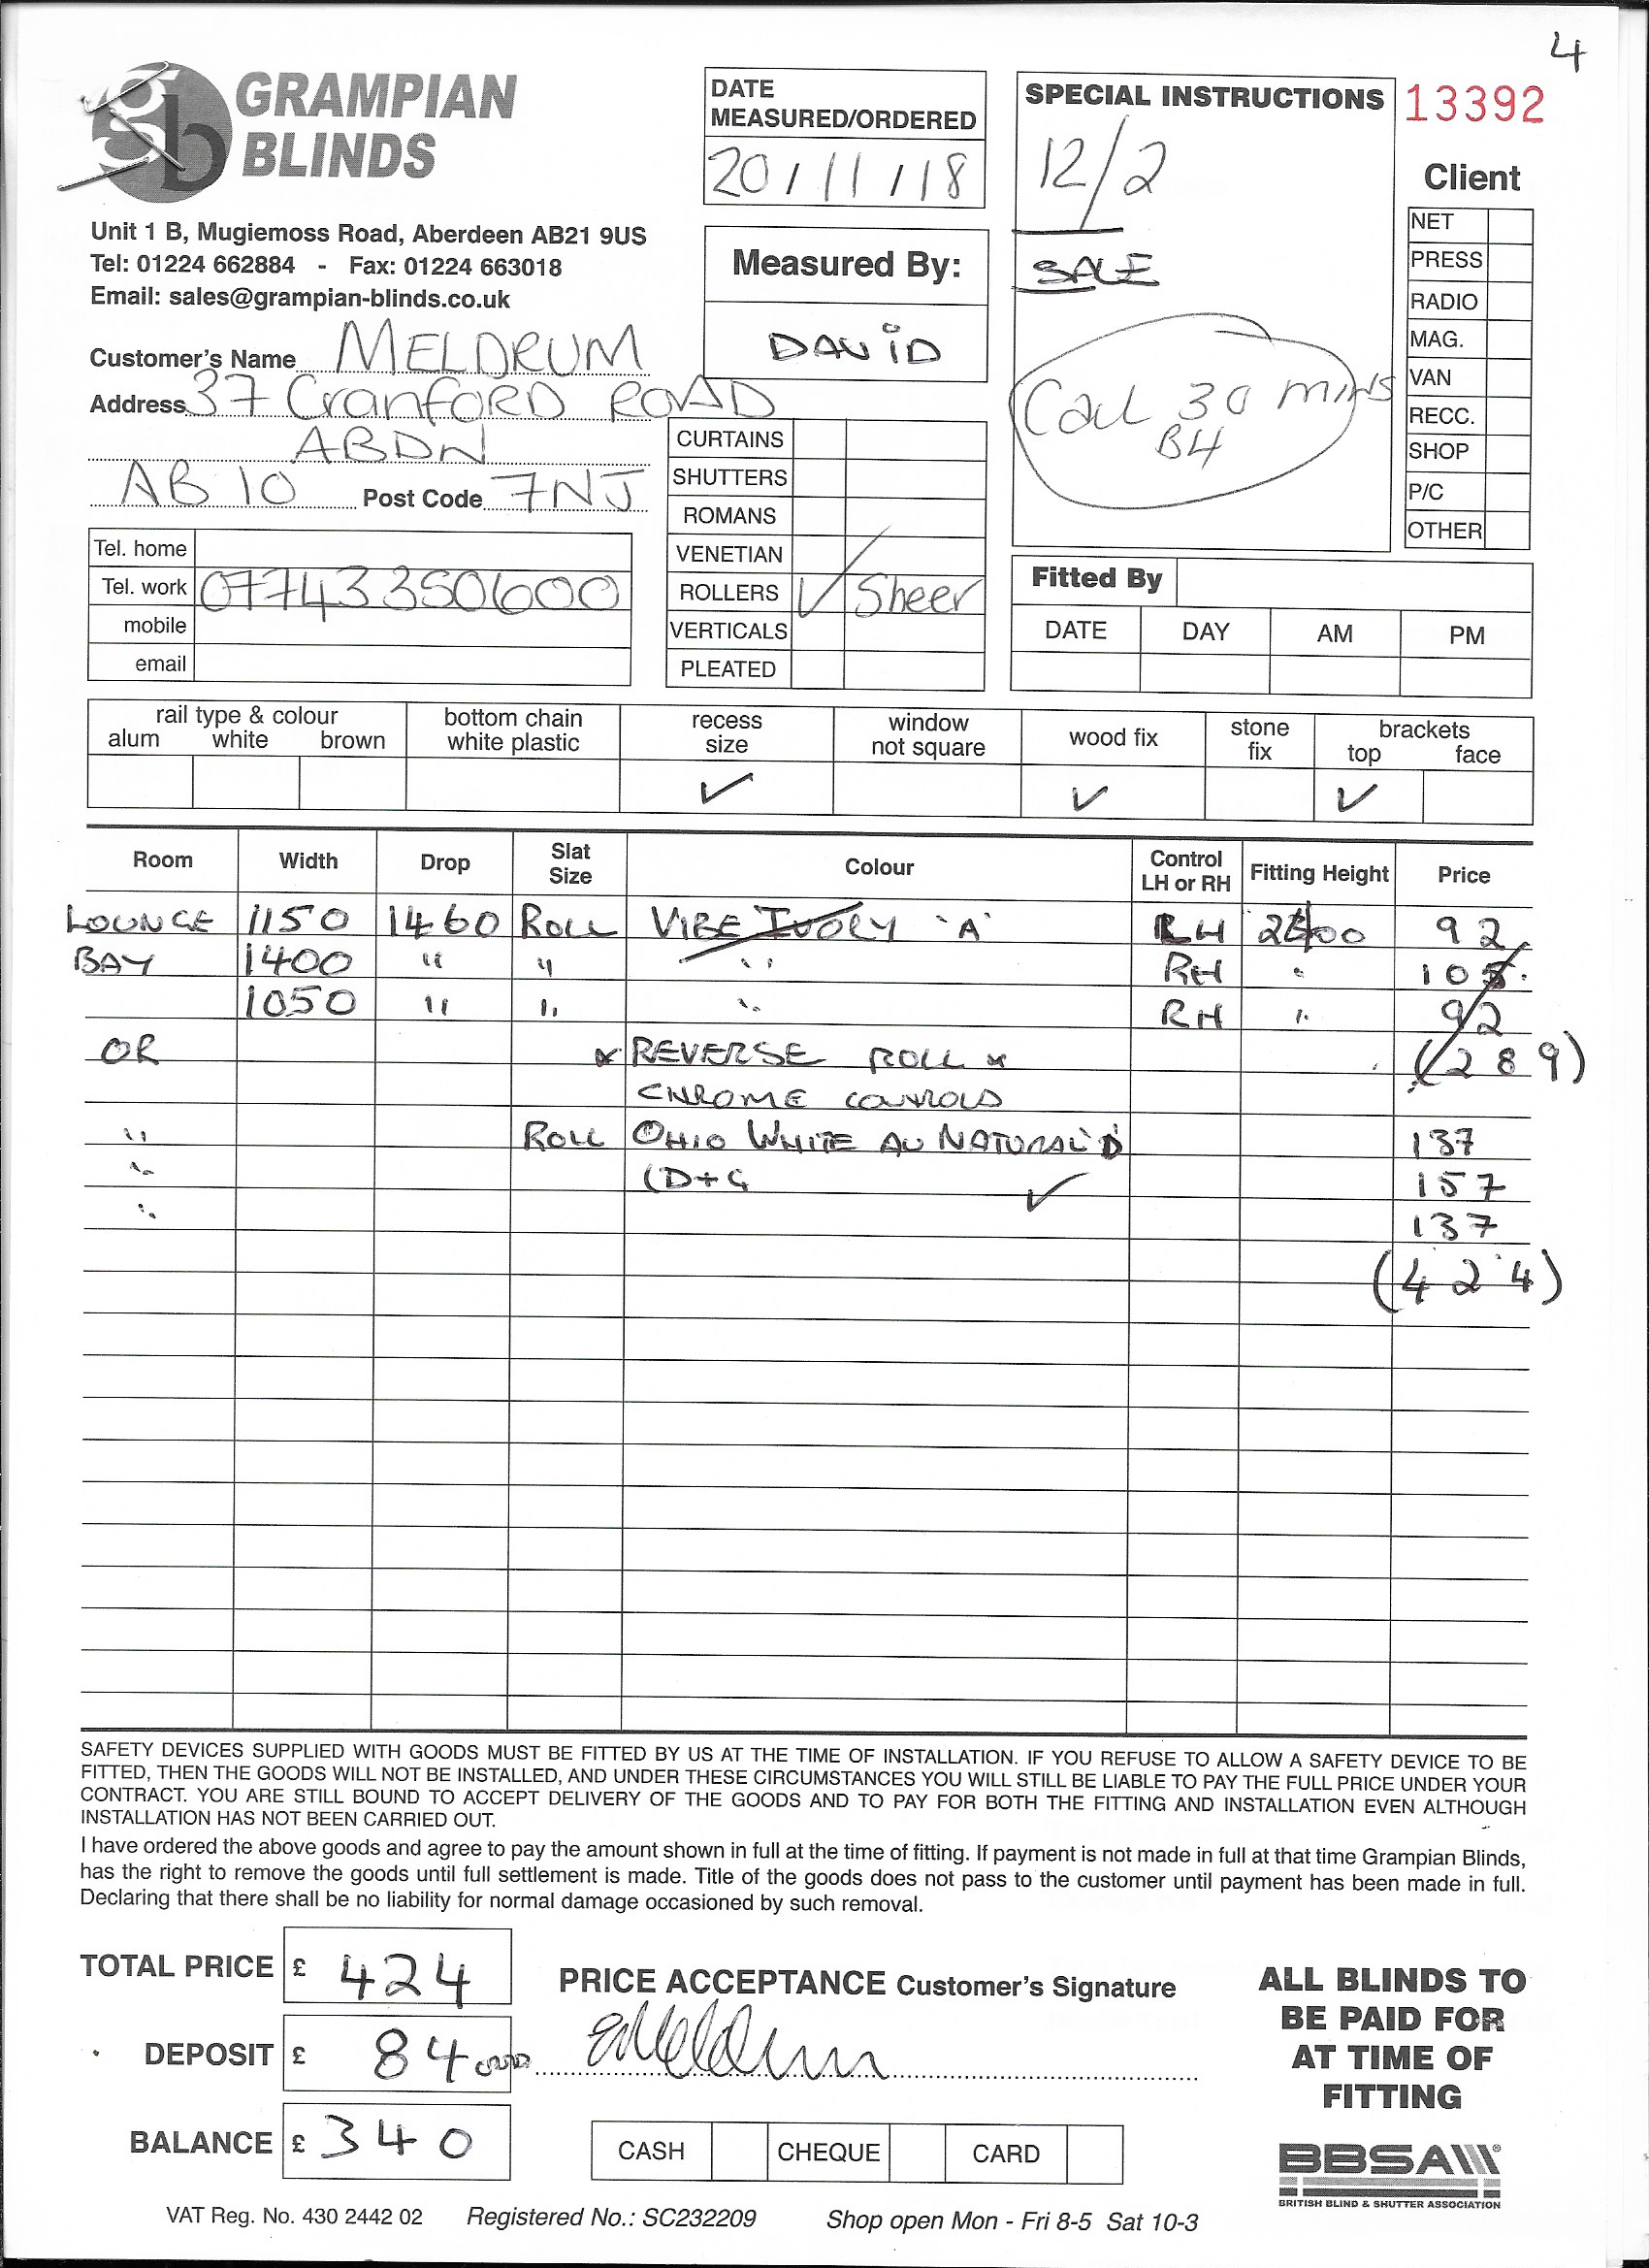 4
GRAMPIAN
BLINDS
Unit 1 B, Mugiemoss Road, Aberdeen AB21 9US
Tel: 01224 662884 - Fax: 01224 663018
Email: sales@grampian-blinds.co.uk
DATE
MEASURED/ORDERED
20/11/18
Measured By:
DAVID
SPECIAL INSTRUCTIONS
12/2
SALE
Call 30 mins
B4
13392
Client
NET
PRESS
RADIO
MAG.
VAN
RECC.
SHOP
P/C
OTHER
Customer's Name MELDRUM
Address 37 CranfORD ROAD
ABDN
AB10 Post Code 7NJ
Tel. home
Tel. work 07743350600
mobile
email
CURTAINS
SHUTTERS
ROMANS
VENETIAN
ROLLERS ✓ Sheer
VERTICALS
PLEATED
Fitted By
DATE DAY AM PM
rail type & colour
alum white brown
bottom chain
white plastic
recess
size
✓
window
not square
wood fix
✓
stone
fix
brackets
top face
✓
Room Width Drop Slat Size Colour Control LH or RH Fitting Height Price
LOUNGE 1150 1460 ROLL VIBE IVORY 'A' LH 92
BAY 1400 " " " RH " 105
1050 " " " RH " 92
OR * REVERSE ROLL * (289)
CHROME CONTROLS
" ROLL OHIO WHITE AU NATURAL 'D' 137
" (D+G ✓ 157
" 137
(424)
SAFETY DEVICES SUPPLIED WITH GOODS MUST BE FITTED BY US AT THE TIME OF INSTALLATION. IF YOU REFUSE TO ALLOW A SAFETY DEVICE TO BE
FITTED, THEN THE GOODS WILL NOT BE INSTALLED, AND UNDER THESE CIRCUMSTANCES YOU WILL STILL BE LIABLE TO PAY THE FULL PRICE UNDER YOUR
CONTRACT. YOU ARE STILL BOUND TO ACCEPT DELIVERY OF THE GOODS AND TO PAY FOR BOTH THE FITTING AND INSTALLATION EVEN ALTHOUGH
INSTALLATION HAS NOT BEEN CARRIED OUT.
I have ordered the above goods and agree to pay the amount shown in full at the time of fitting. If payment is not made in full at that time Grampian Blinds,
has the right to remove the goods until full settlement is made. Title of the goods does not pass to the customer until payment has been made in full.
Declaring that there shall be no liability for normal damage occasioned by such removal.
TOTAL PRICE £ 424
DEPOSIT £ 84
BALANCE £ 340
PRICE ACCEPTANCE Customer's Signature
CASH CHEQUE CARD
ALL BLINDS TO
BE PAID FOR
AT TIME OF
FITTING
BBSA
BRITISH BLIND & SHUTTER ASSOCIATION
VAT Reg. No. 430 2442 02 Registered No.: SC232209 Shop open Mon - Fri 8-5 Sat 10-3